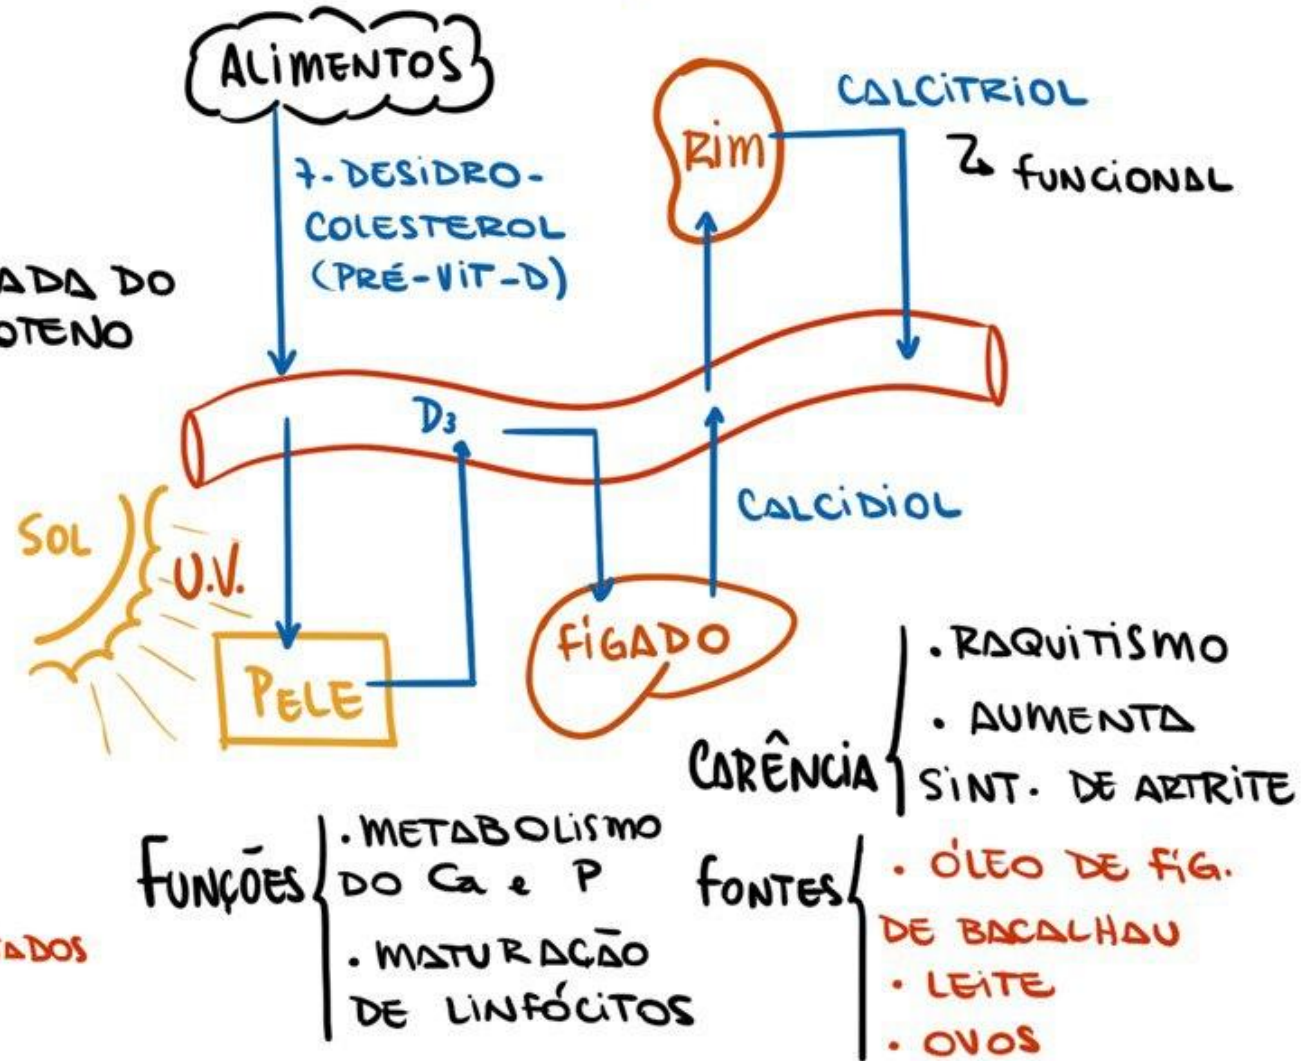 ALIMENTOS
7-DESIDRO-
COLESTEROL
(PRÉ-VIT-D)
RIM
CALCITRIOL
FUNCIONAL
ADA DO
OTENO
D3
CALCIDIOL
SOL
U.V.
PELE
FÍGADO
CARÊNCIA
. RAQUITISMO
. AUMENTA
SINT. DE ARTRITE
FUNÇÕES
. METABOLISMO
DO Ca e P
. MATURAÇÃO
DE LINFÓCITOS
FONTES
. ÓLEO DE FÍG.
DE BACALHAU
. LEITE
. OVOS
ADOS